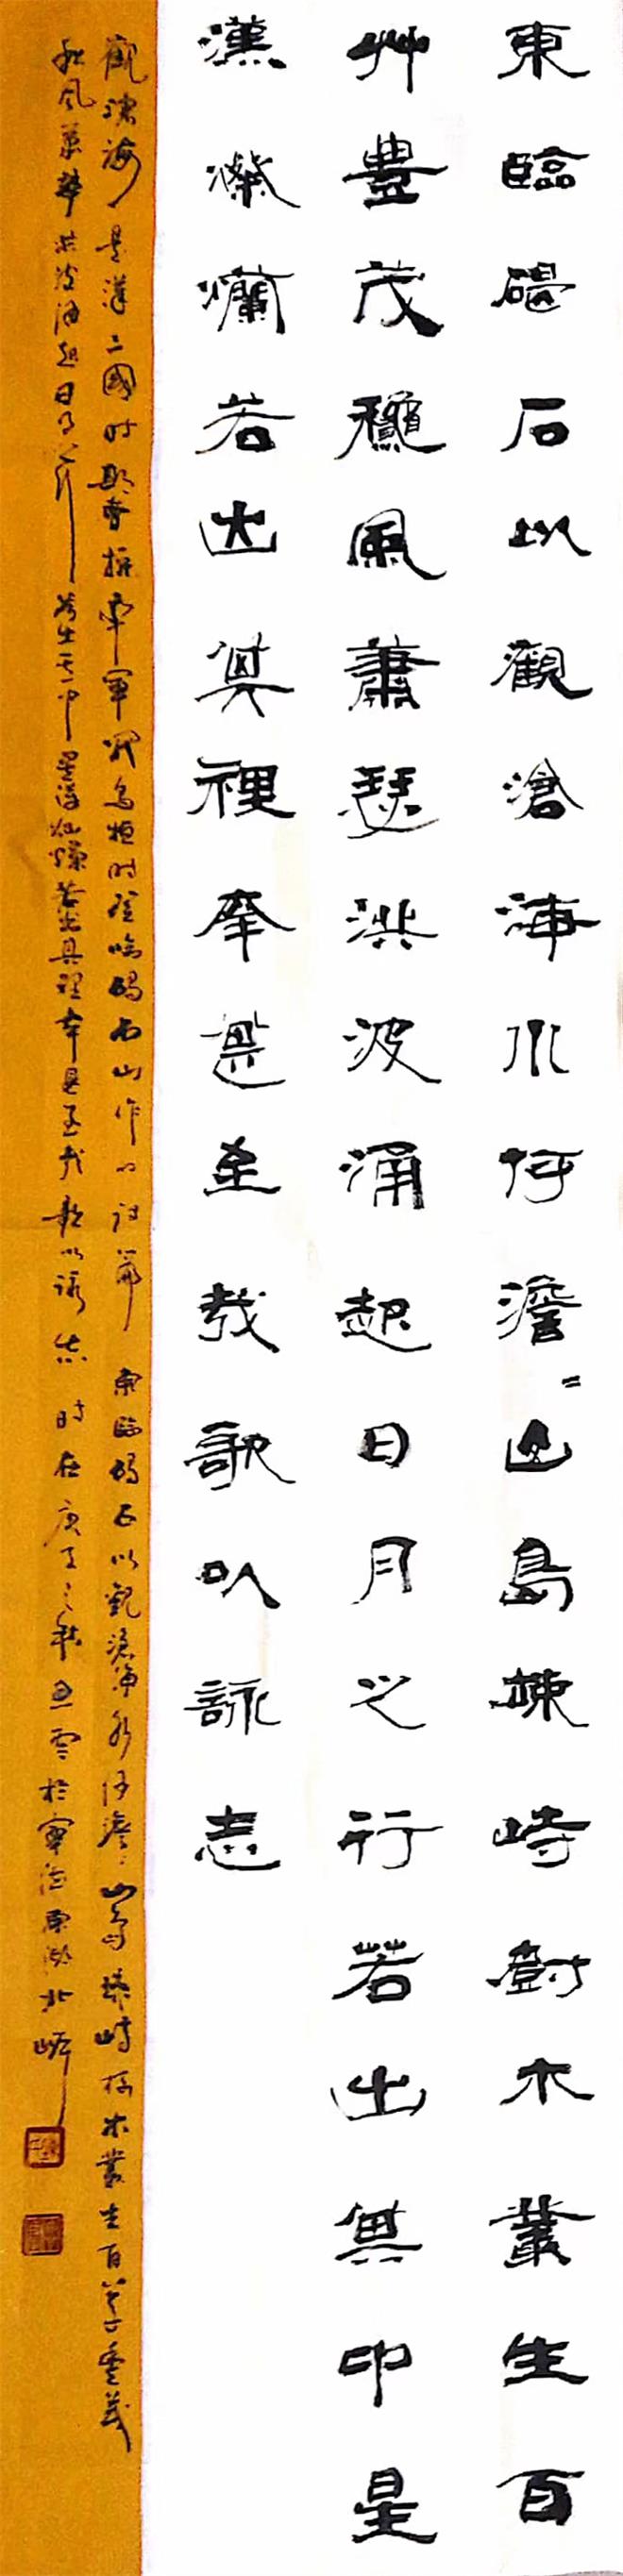 東臨碣石以觀滄海水何澹=山島竦峙樹木叢生百
艸豐茂龝風蕭瑟洪波涌起日月之行若出其中星
漢燦爛若出其裡幸甚至哉歌以詠志
觀滄海 是漢三國時期曹操率軍戰烏桓時登臨碣石山作的詩篇 東臨碣石以觀滄海水何澹=山島竦峙樹木叢生百草豐茂
秋風蕭瑟洪波涌起日月之行若出其中星漢燦爛若出其裡幸甚至哉歌以詠志 時在庚子之秋 於寧德東湖北岸